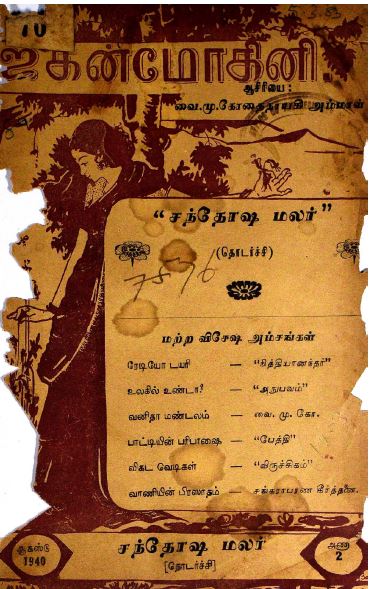 70
ஜகன்மோகினி.
ஆசிரியை :
வை.மு.கோதைநாயகி அம்மாள்
“சந்தோஷ மலர்”
(தொடர்ச்சி)
7576
மற்ற விசேஷ அம்சங்கள்
ரேடியோ டயரி — “சித்தியானந்தர்”
உலகில் உண்டா? — “அநுபவம்”
வனிதா மண்டலம் — வை. மு. கோ.
பாட்டியின் பரிபாஷை — “பேத்தி”
விகட வெடிகள் — “விருச்சிகம்”
வாணியின் பிரஸாதம் — சங்கராபரண கீர்த்தனை.
ஆகஸ்டு
1940
சந்தோஷ மலர்
[தொடர்ச்சி]
அணா
2